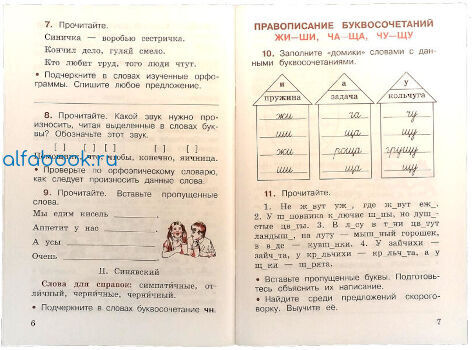 7. Прочитайте.
Синичка — воробью сестричка.
Кончил дело, гуляй смело.
Кто любит труд, того люди чтут.
• Подчеркните в словах изученные орфо-
граммы. Спишите любое предложение.
8. Прочитайте. Какой звук нужно про-
износить, читая выделенные в словах бук-
вы? Обозначьте этот звук.
[ ] [ ] [ ] [ ]
что, чтобы, конечно, яичница.
• Проверьте по орфоэпическому словарю,
как следует произносить данные слова.
alfabook.ru
9. Прочитайте. Вставьте пропущенные
слова.
Мы едим кисель
Аппетит у нас
А усы
Очень
П. Синявский
Слова для справок: симпатичные, от-
личный, черничный, черничный.
• Подчеркните в словах буквосочетание чн.
6
ПРАВОПИСАНИЕ БУКВОСОЧЕТАНИЙ
ЖИ—ШИ, ЧА—ЩА, ЧУ—ЩУ
10. Заполните «домики» словами с дан-
ными буквосочетаниями.
и а у
пружина задача кольчуга
жи ча чу
ши ща щу
жи роща грущу
ши ща щу
11. Прочитайте.
1. Не ж_вут уж_, где ж_вут еж_.
2. У ш_повника к_лючие ш_пы, но душ_-
стые цв_ты. 3. В л_су в т_ни цв_тут
ландыш_, на лугу — мыш_ный горошек,
в в_де — кувш_нки. 4. У зайчихи —
зайч_та, у кр_льчихи — кр_льч_та, а у
щ_ки — щ_рята.
• Вставьте пропущенные буквы. Подготовь-
тесь объяснить их написание.
• Найдите среди предложений скорого-
ворку. Выучите её.
7